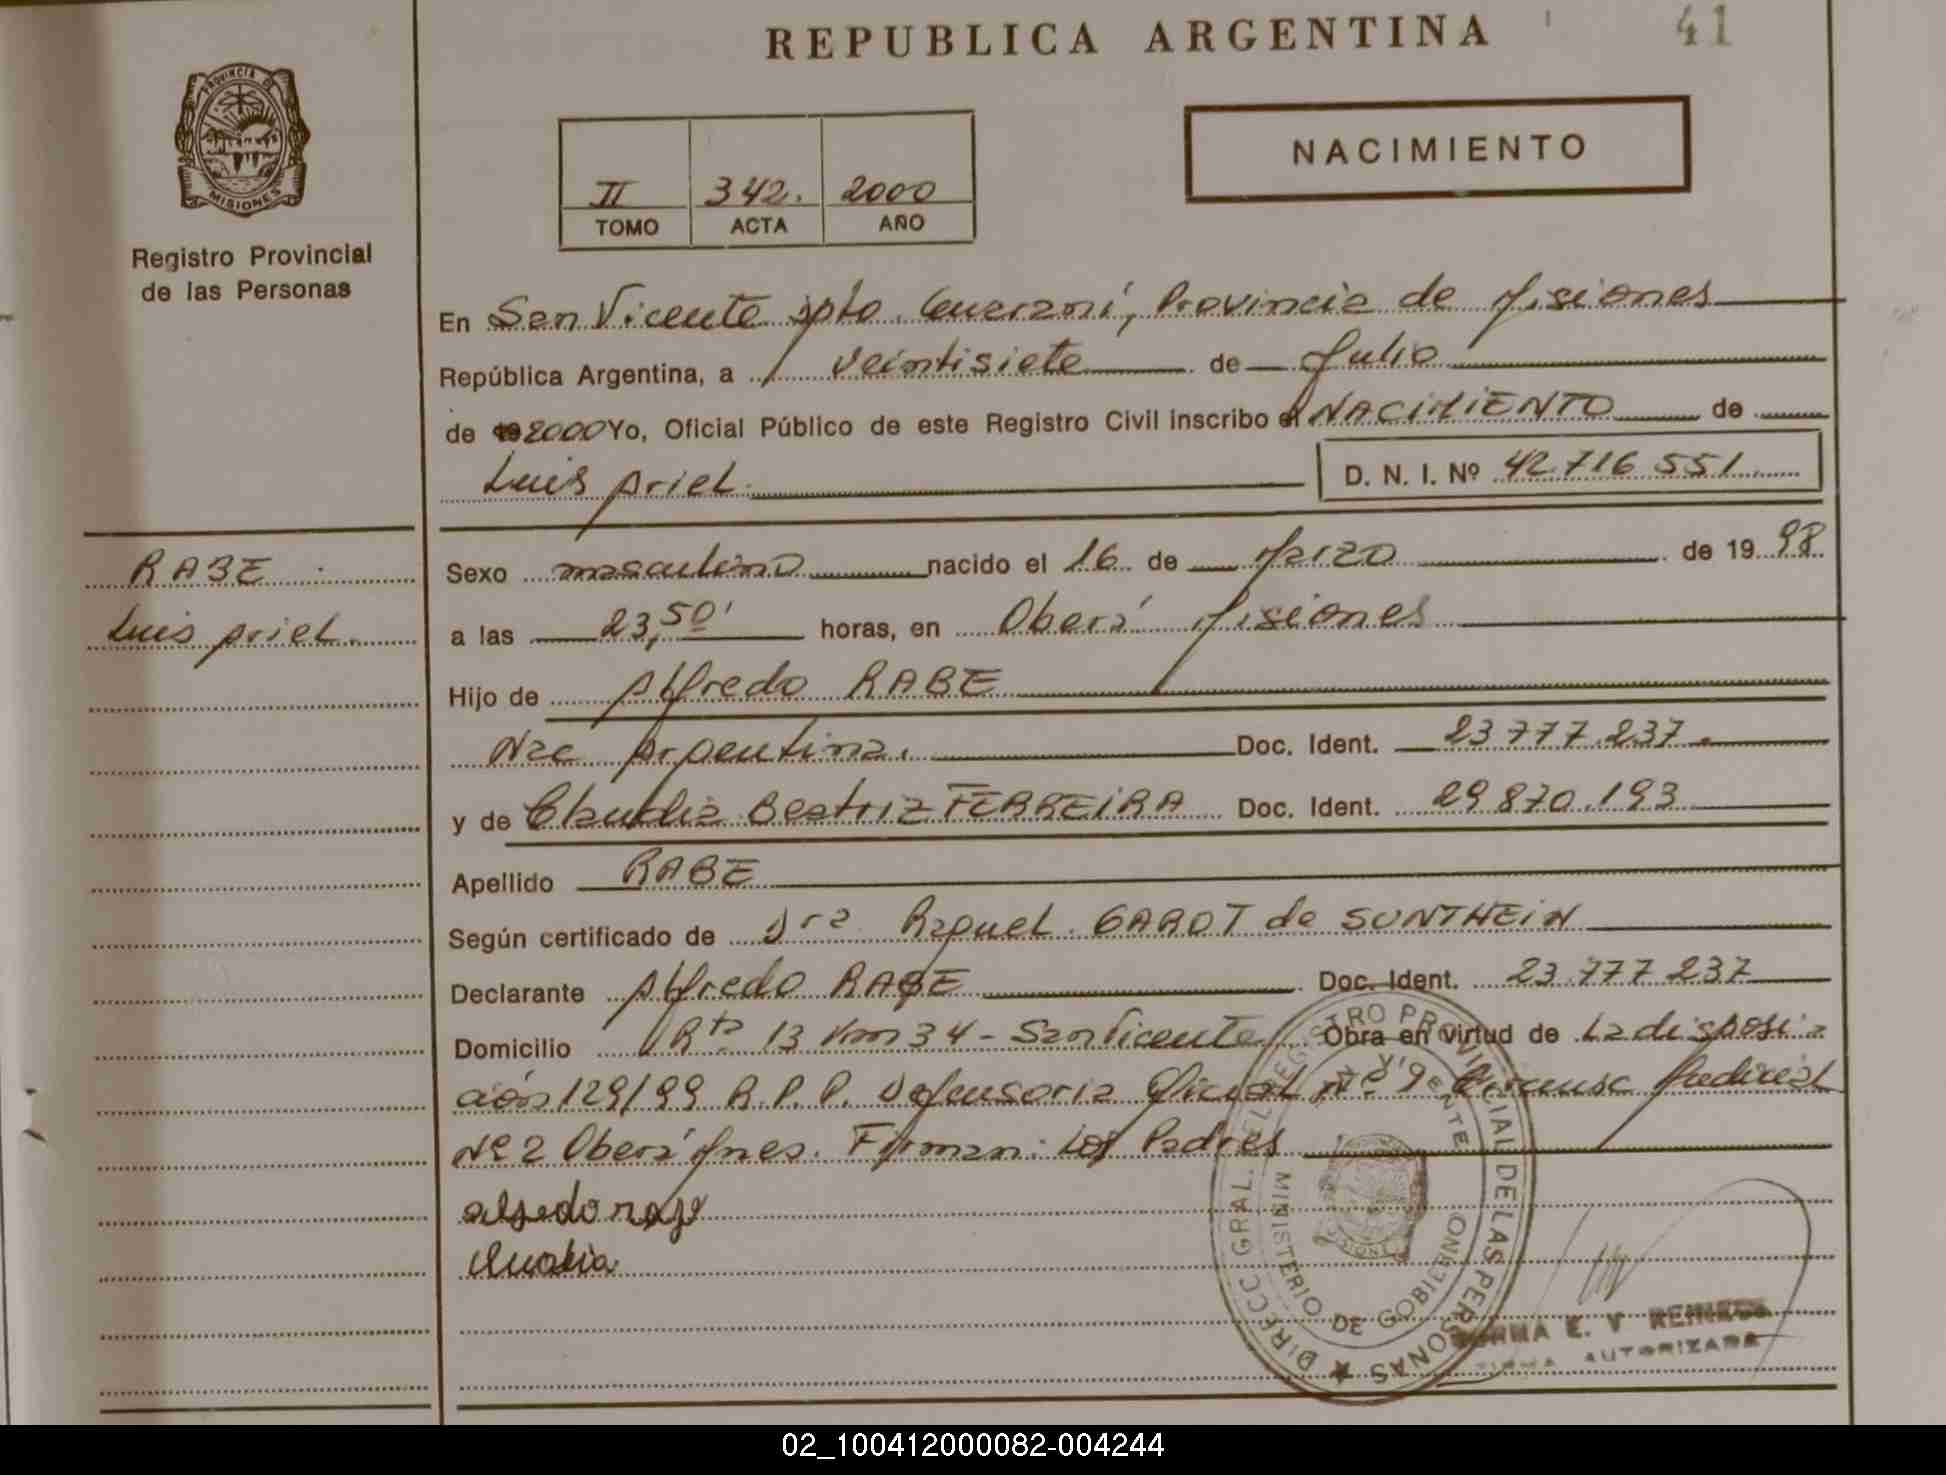 REPUBLICA ARGENTINA
41
PROVINCIA DE
MISIONES
Registro Provincial
de las Personas
II 342. 2000
TOMO ACTA AÑO
NACIMIENTO
En San Vicente Dpto. Guaraní, Provincia de Misiones
República Argentina, a Veintisiete de Julio
de 2000 Yo, Oficial Público de este Registro Civil inscribo el NACIMIENTO de
Luis Ariel D. N. I. Nº 42.716.551
RABE
Luis Ariel.
Sexo masculino nacido el 16 de Marzo de 1998
a las 23,50' horas, en Oberá Misiones
Hijo de Alfredo RABE
Nac Argentina. Doc. Ident. 23.777.237.
y de Claudia Beatriz FERREIRA Doc. Ident. 29.870.193
Apellido RABE
Según certificado de Dra Raquel GAROT de SUNTHEIN
Declarante Alfredo RABE Doc. Ident. 23.777.237
Domicilio Rta 13 Km 34 - San Vicente Obra en virtud de La disposi-
ción 129/99 R.P.P. Defensoria Oficial Nº 9 Judicial
Nº 2 Oberá Mnes. Firman: Los Padres
DIRECC GRAL. DEL REGISTRO PROVINCIAL DE LAS PERSONAS
MINISTERIO DE GOBIERNO
E. V
FIRMA AUTORIZADA
02_100412000082-004244